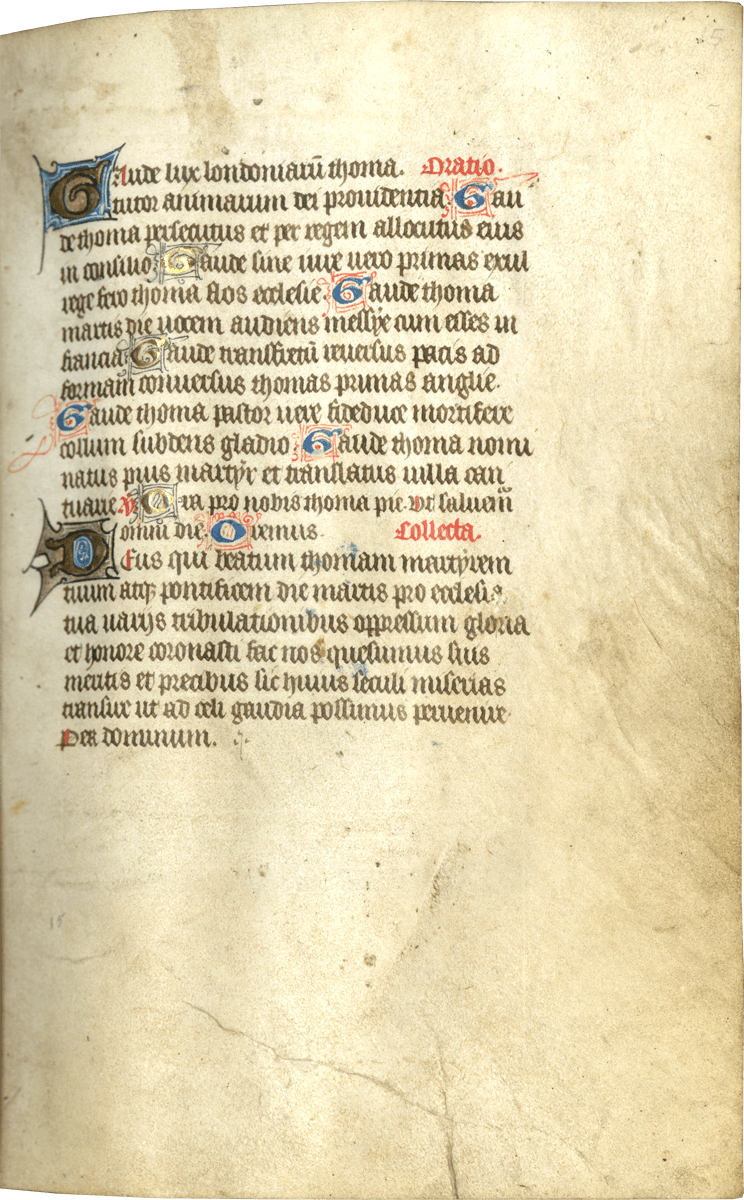 Gaude lux londoniarū thoma. Oratio.
tutor animarum dei prouidentia. Gau
de thoma persecutus et per regem allocutus eius
in consilio. Gaude sine iure uero primas exul
rege fero thoma flos ecclesie. Gaude thoma
martis die uocem audiens messye cum esses in
francia. Gaude transfretū reuersus pacis ad
formam conuersus thomas primas anglie.
Gaude thoma pastor uere fideduce mortifere
collum subdens gladio. Gaude thoma nomi
natus pius martyr et translatus uilla can
tuarie. V Ora pro nobis thoma pie. Vt saluem̄
omni die. Oremus. Collecta.
Deus qui beatum thomam martyrem
tuum atq; pontificem die martis pro ecclesia
tua uarijs tribulationibus oppressum gloria
et honore coronasti fac nos quesumus suis
meritis et precibus sic huius seculi miserias
transire ut ad celi gaudia possimus peruenire.
Per dominum.
15